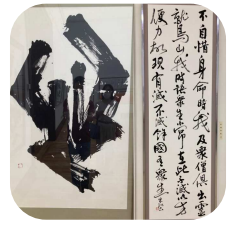 不自惜身命時我及衆僧俱出靈
鷲山我時語衆生常在此不滅以方
便力故現有滅不滅餘國有衆生恭